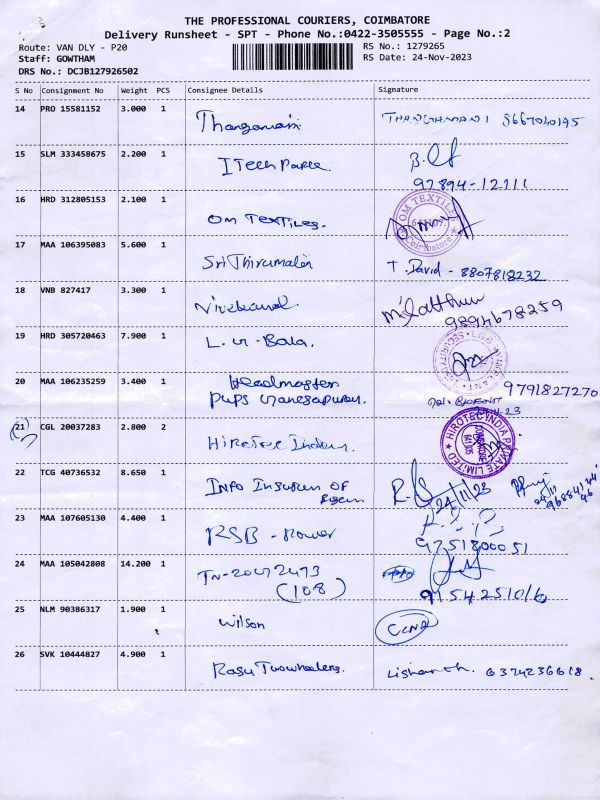 THE PROFESSIONAL COURIERS, COIMBATORE
Delivery Runsheet - SPT - Phone No.:0422-3505555 - Page No.:2
Route: VAN DLY - P20
RS No.: 1279265
Staff: GOWTHAM
RS Date: 24-Nov-2023
DRS No.: DCJB127926502
S No Consignment No Weight PCS Consignee Details Signature
14 PRO 15581152 3.000 1
Thangamani THANGAMANI
15 SLM 333458675 2.200 1
ITech
97894-12111
16 HRD 312805153 2.100 1
OM TEXTILES.
OM TEXTILES
Coimbatore
17 MAA 106395083 5.600 1
Sri Thirumalai T. David - 8807818232
18 VNB 827417 3.300 1
Vivekanand.
9894678259
19 HRD 305720463 7.900 1
L.G - Bala.
20 MAA 106235259 3.400 1
Headmaster
PUPS Ganesapuram. 9791827270
21 CGL 20037283 2.800 2
HIROTEC INDIA PRIVATE LIMITED
22 TCG 40736532 8.650 1
INFO 24/11/23
23 MAA 107605130 4.400 1
RSB - Power
9751800051
24 MAA 105042808 14.200 1
(108)
25 NLM 90386317 1.900 1
Wilson
26 SVK 10444827 4.900 1
Rasu Twowheelers. 6374236618.